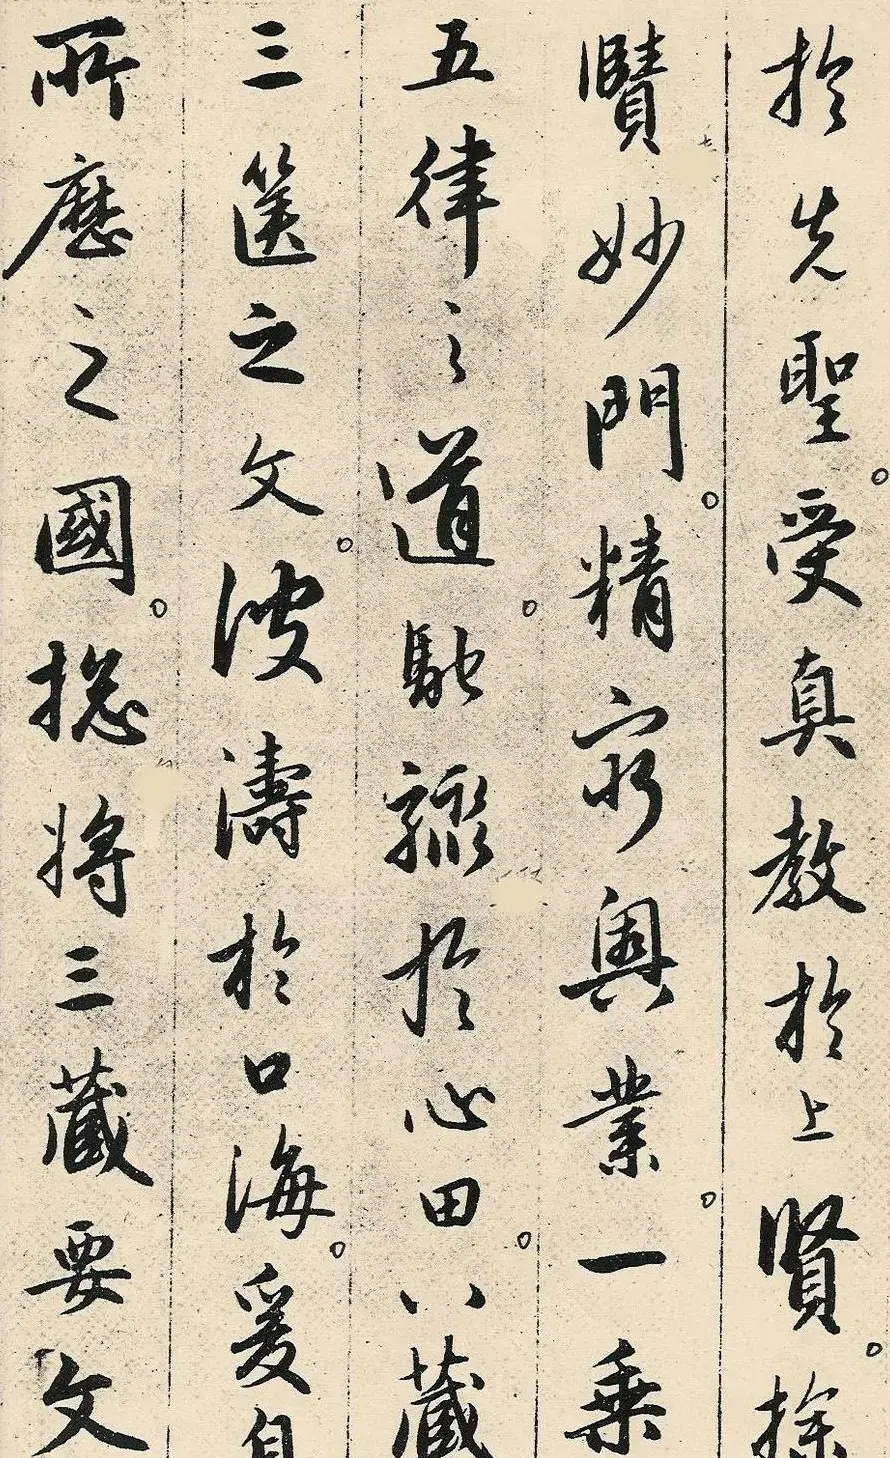 於先聖。受真教於上賢。探
賾妙門。精窮奧業。一乘
五律之道。馳驟於心田。八藏
三篋之文。波濤於口海。爰自
所歷之國。総將三藏要文